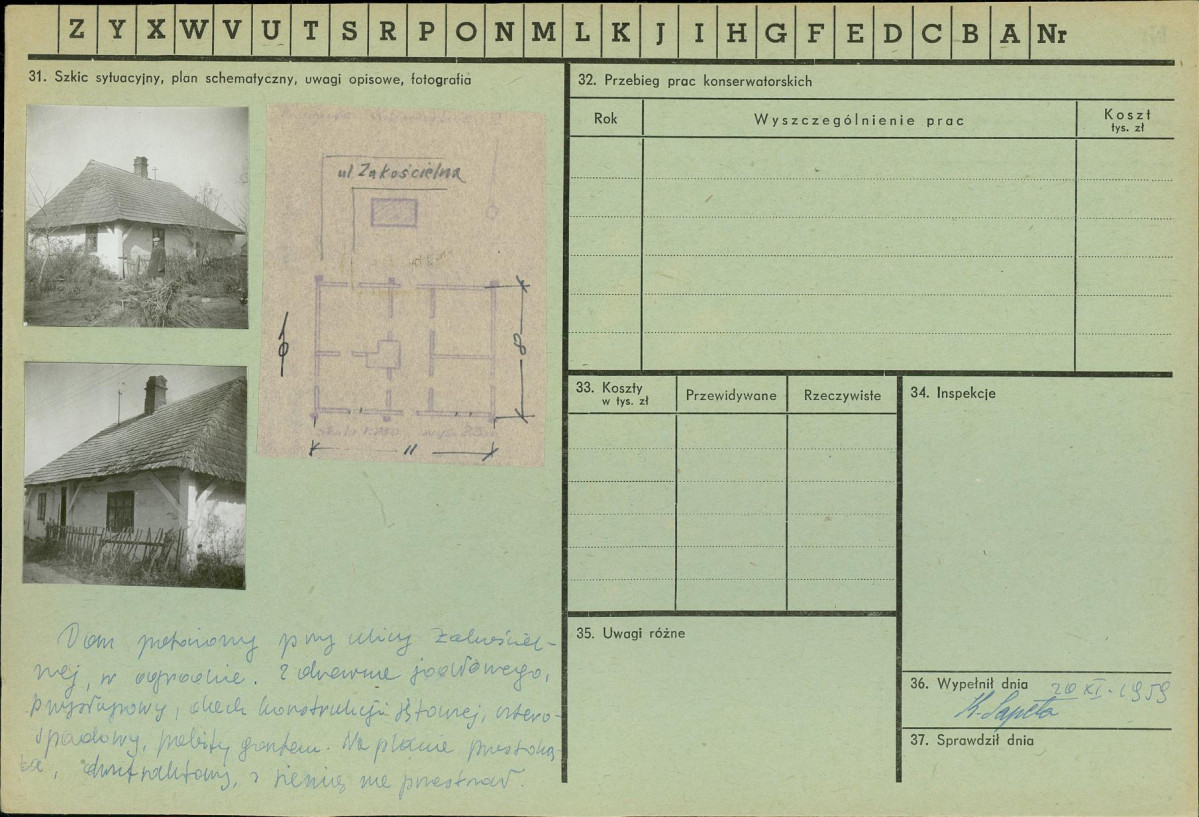 Z Y X W V U T S R P O N M L K J I H G F E D C B A Nr
31. Szkic sytuacyjny, plan schematyczny, uwagi opisowe, fotografia
ul Zakościelna
8
11
Dom położony przy ulicy Zakościel-
nej, w ogrodzie. Z drewna jodłowego,
przysłupowy, dach konstrukcji stolcowej, cztero-
spadowy, pobity gontem. Na planie prostoką-
ta, dwutraktowy, z sienią na przestrzał.
32. Przebieg prac konserwatorskich
Rok Wyszczególnienie prac Koszt tys. zł
33. Koszty w tys. zł Przewidywane Rzeczywiste
34. Inspekcje
35. Uwagi różne
36. Wypełnił dnia 20 XI. 1959
K. Sapeta
37. Sprawdził dnia